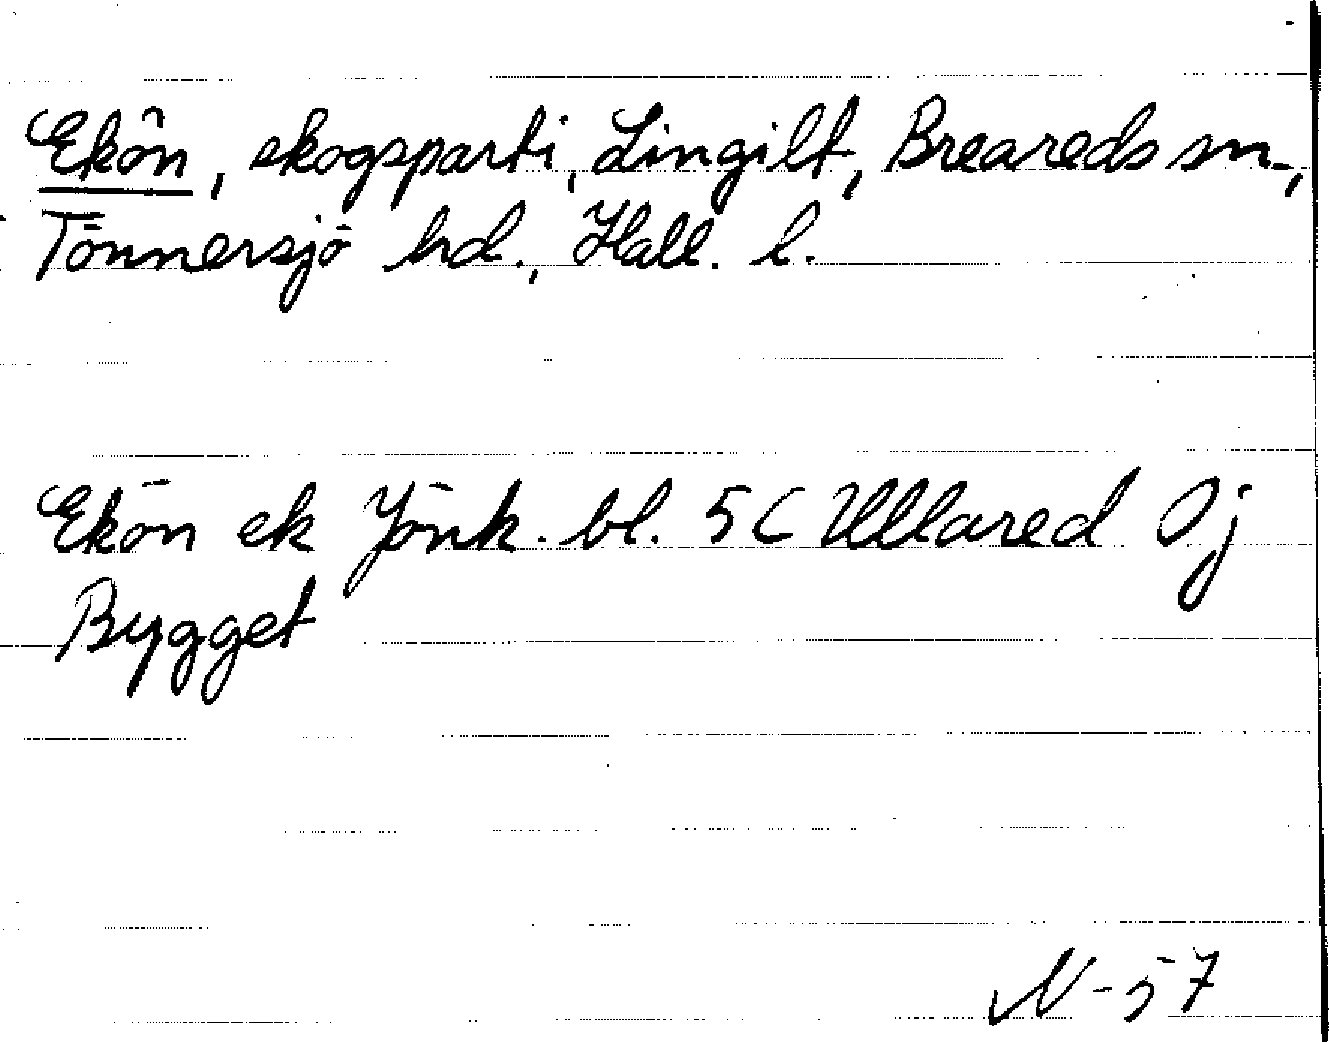 Ekön, skogsparti, Lingilt, Breareds sn.,
Tönnersjö hd., Hall. l.
Ekön ek Jönk. bl. 5C Ullared Oj
Bygget
N-57